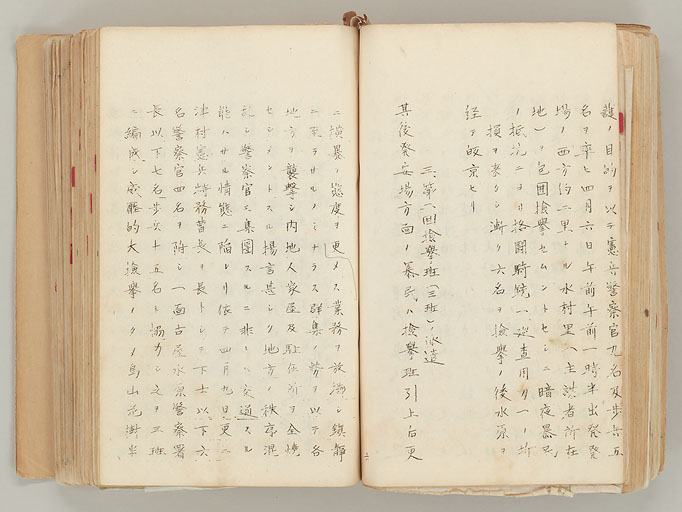 護ノ目的ヲ以テ憲兵警察官九名及歩兵五
名ヲ率ヒ四月六日午前午前一時半出発発
場ノ西方約二里ナル水村里(主謀者所在
地)ヲ包囲検挙セムトセシニ暗夜暴民
ノ抵抗ニヨリ格闘騎銃一、巡査用刀一ノ
損ヲ来タシ漸ク六名ヲ検挙ノ後水原ヲ
経テ帰京セリ
三、第一回検挙班(三班)ノ派遣
其後発安場方面ノ暴民ハ検挙班引上后更
ニ横暴ノ態度ヲ更メス業務ヲ放擲シ鎮静
ニ至ラサルノミナラス群集ノ勢ヲ以テ各
地方ヲ襲撃シ内地人家屋及駐在所ヲ全焼
セシメントスル揚言甚シク地方ノ秩序混
乱シ警察官ニ集團スルニ非レハ交通スル
能ハサル情態ニ陥レリ依テ四月九日更ニ
津村憲兵特務曹長ヲ長トシテ下士以下六
名警察官四名ヲ附シ一面古屋水原警察署
長以下七名歩兵十五名ト協力シ之ヲ三班
ニ編成シ威圧的大検挙ノタメ烏山花樹半